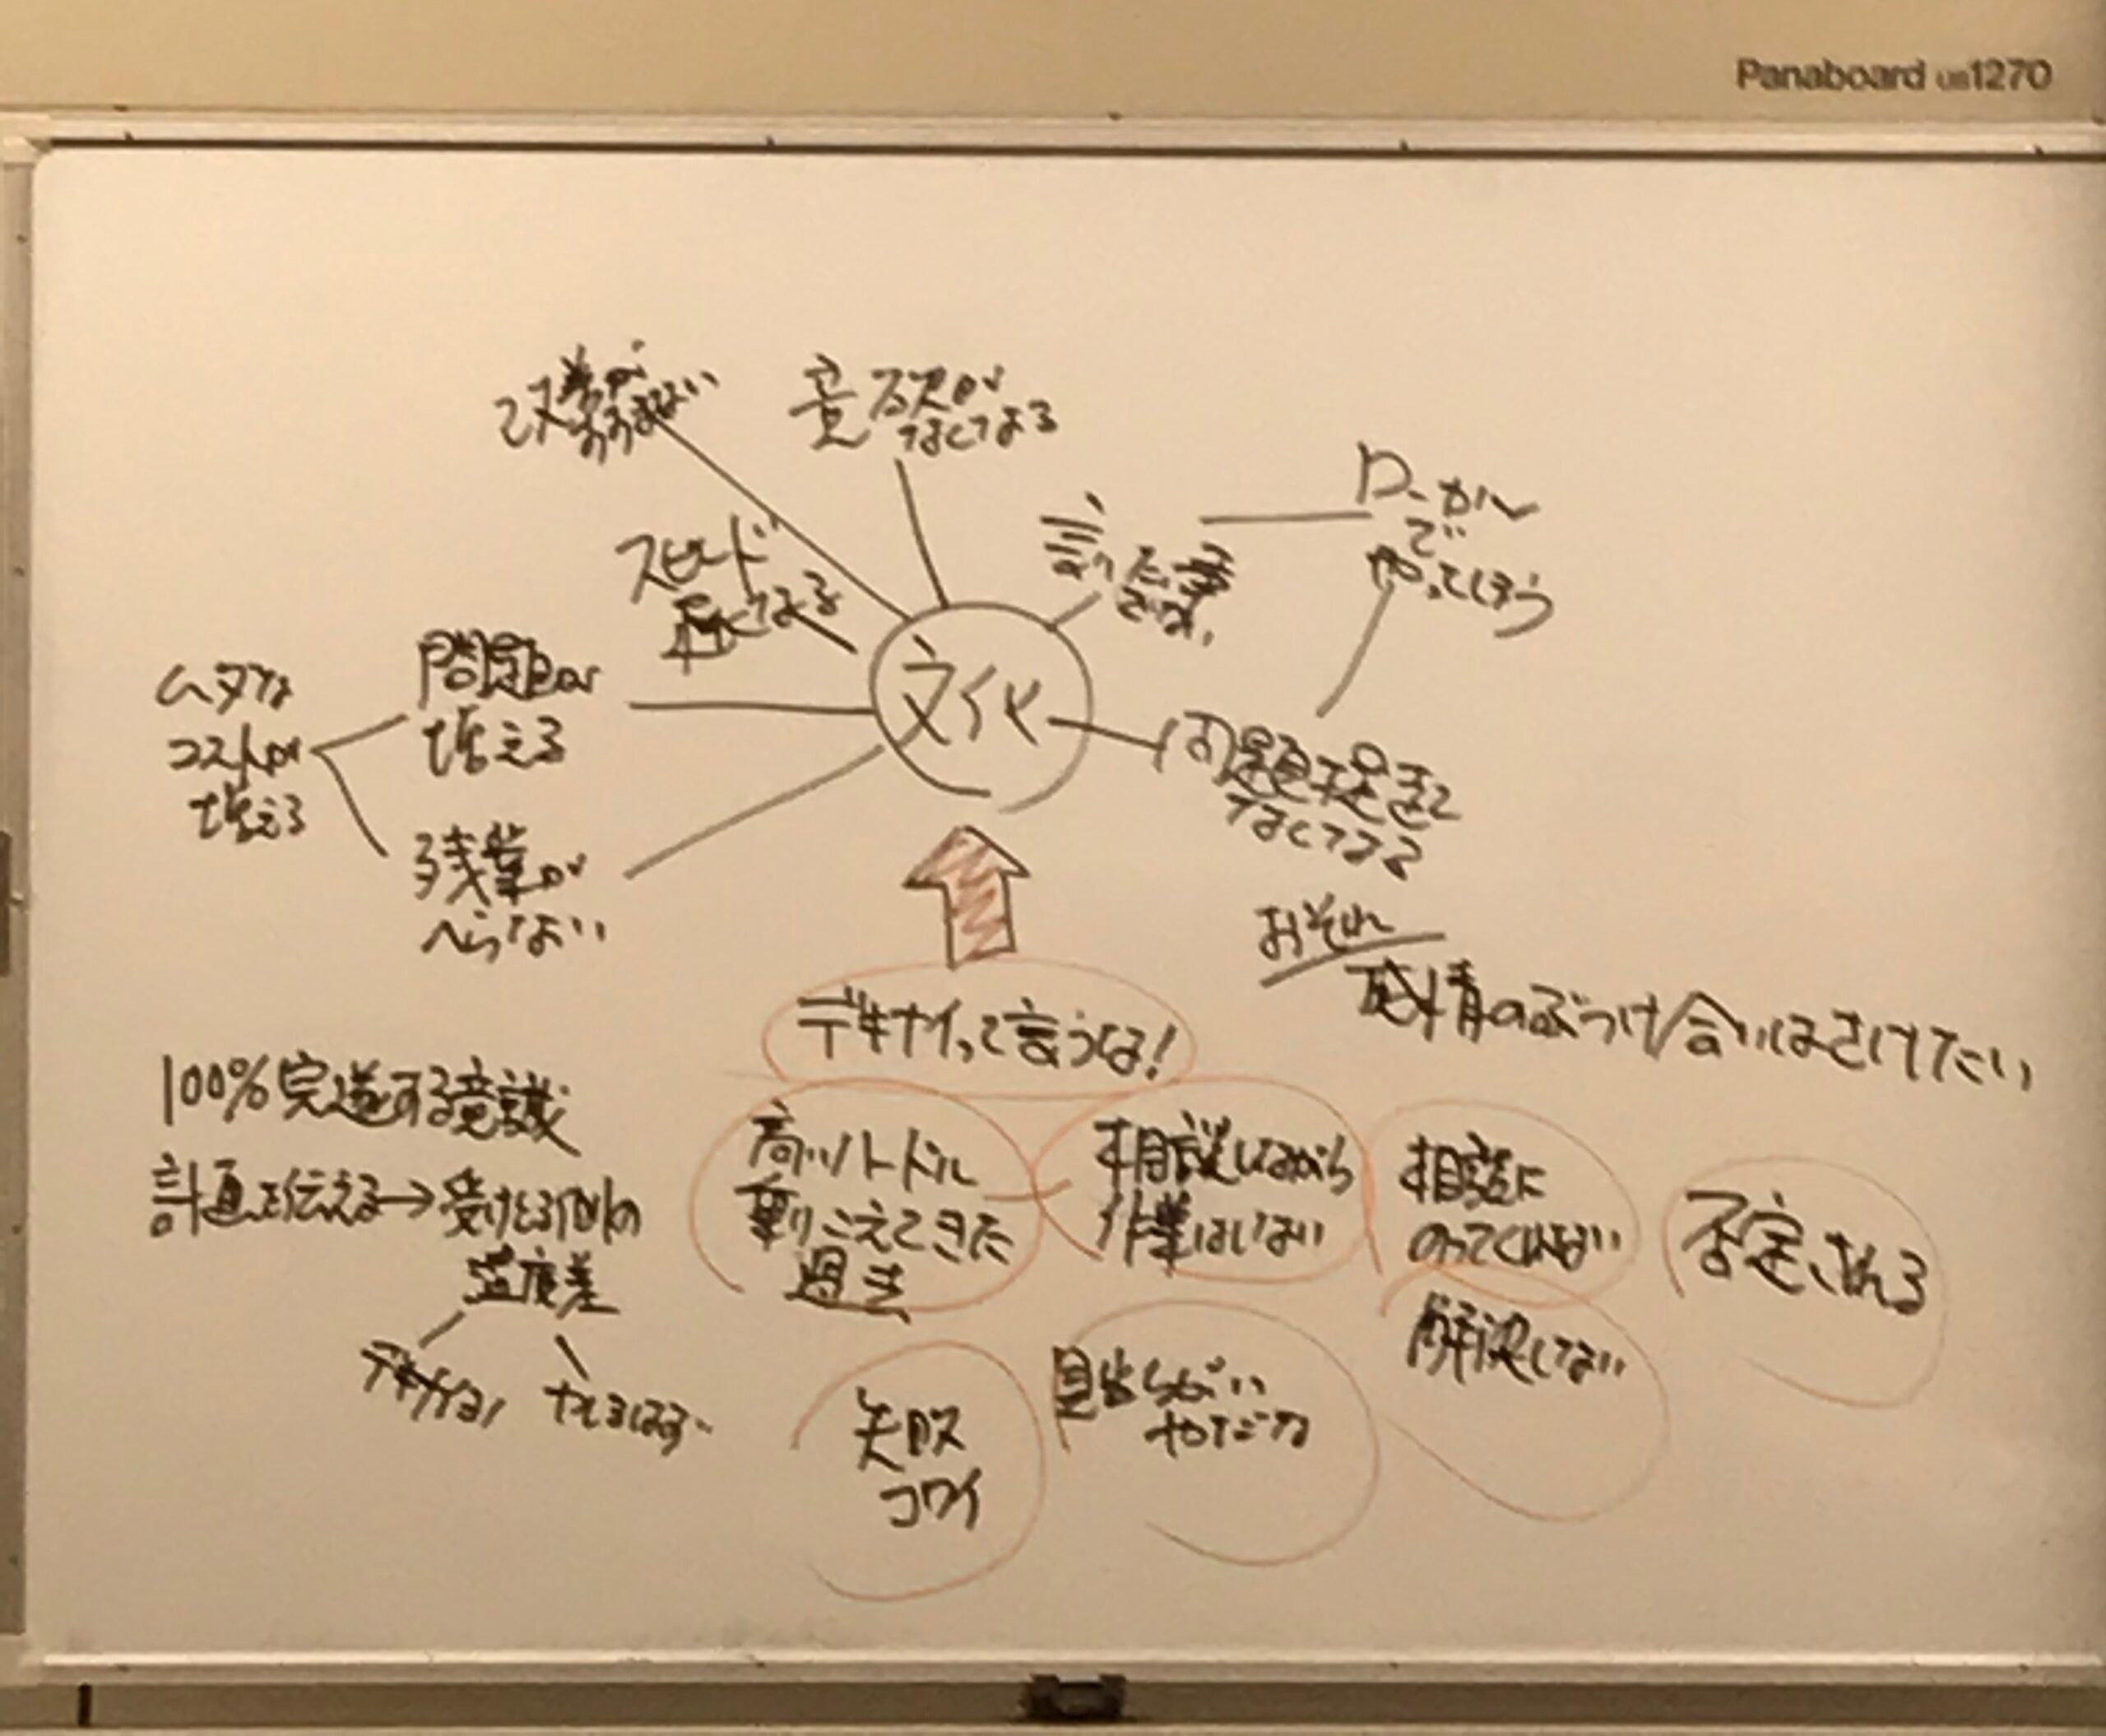 Panaboard
改善が
すすまない
意欲が
なくなる
スピード
遅くなる
言った事
だけ
ローカル
で
やってしまう
文化
ムダな
コストが
増える
問題が
増える
残業が
へらない
問題提起を
なくなる
おそれ
感情のぶつけ合いはさけたい
デキナイって言うな!
100%完遂する意識
計画を伝える→受けとる側の
温度差
デキナイヨ!
やれるはず
高いハードル
乗りこえてきた
過去
相談しながら
作業はしない
相談に
のってくれない
解決しない
否定される
失敗
コワイ
見当ちがい
やだな